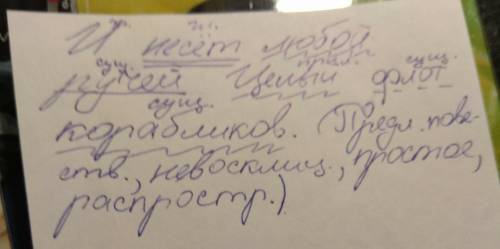 гл.
И несёт любой
сущ. прил. сущ.
ручей Целый флот
сущ.
корабликов. (Предл. пове-
ств., невосклиц., простое,
распростр.)